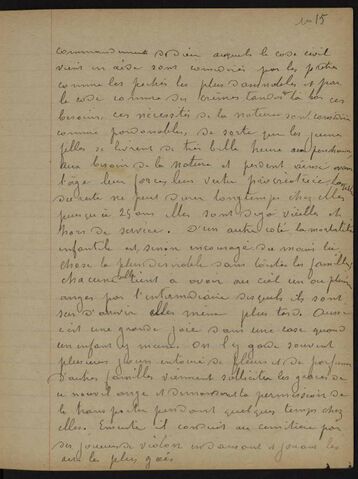 no 15
commandement de dieu auquels le code civil
vient en aide sont considérés par les prêtres
comme les pechés les plus damnables et par
le code comme des crimes tandis que là bas ces
besoins, ces nécessités de la nature sont considérés
comme pardonables, de sorte que les jeunes
filles se livrent de très bonne heure aux
besoin de la nature et perdent ainsi avant
l'âge leur force, leur vertu procréatrice laquelle
du reste ne peut durer longtemps chez elles
jusqu'à 25 ans elles sont dejà vieilles et
hors de service. D'un autre coté la mortalité
infantile est, sinon encouragée du moins la
chose la plus desirable dans toutes les familles
chacune d'elle tient a avoir au ciel un ou plusieurs
anges par l'intermédiaire desquels ils sont
surs d'avoir elles meme plus tard. Aussi
c'est une grande joie dans une case quand
un enfant y meurt. On l'y garde souvent
plusieurs jours entouré de fleurs et de parfums
d'autres familles viennent solliciter les graces de
ce nouvel ange et demandent la permission de
le transporter pendant quelques temps chez
elles. Ensuite il conduit au cimetière par
des joueurs de violon en dansant et jouant les
airs les plus gais.